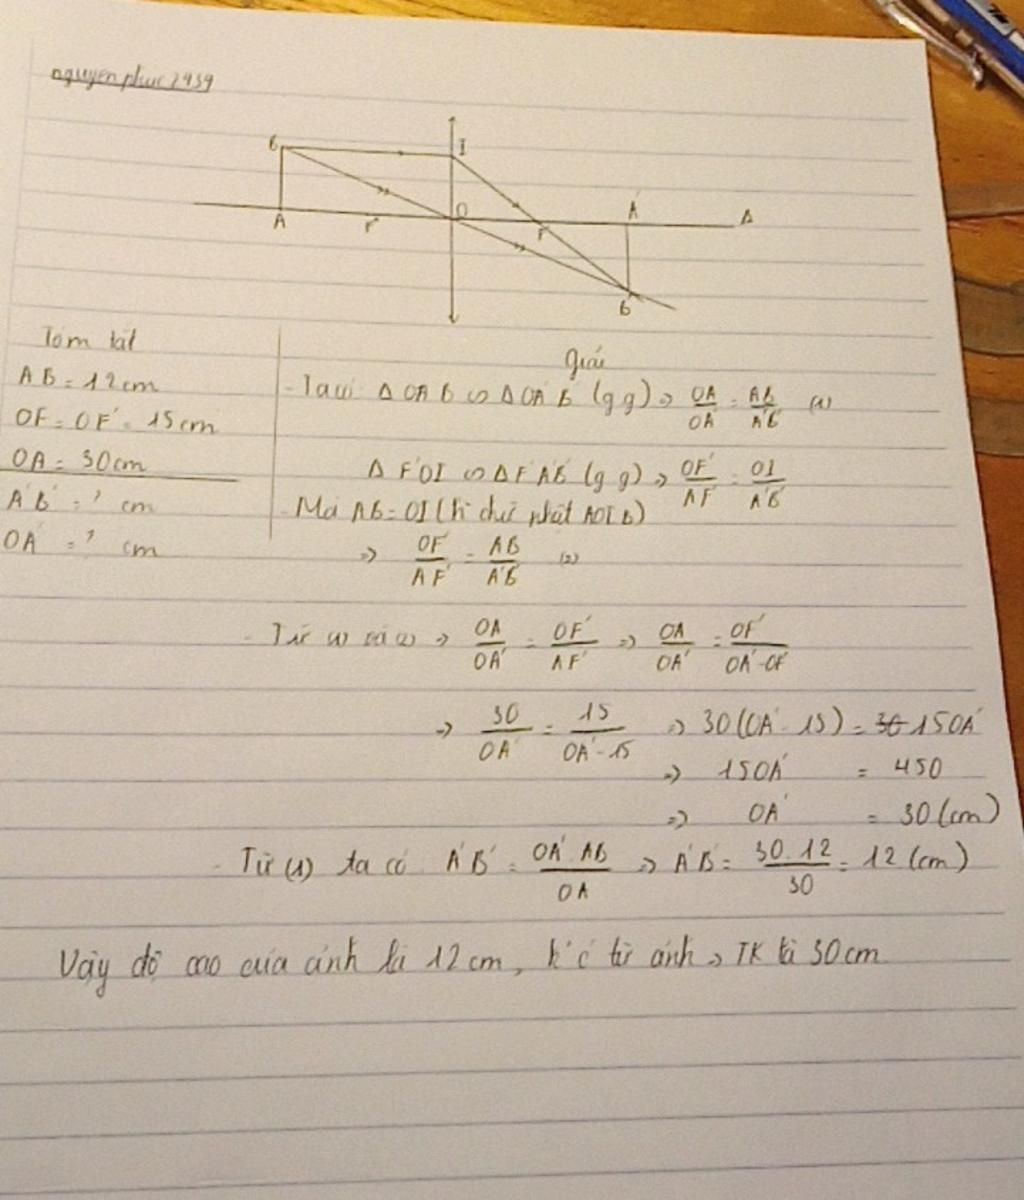 nguyenphuc2939
B I
A F O F' A' Δ
B'
Tóm tắt
AB = 12cm
OF = OF' = 15cm
OA = 30cm
A'B' = ? cm
OA' = ? cm
Giải
- Ta có Δ OAB ∽ Δ OA'B' (g g) => OA/OA' = AB/A'B' (1)
Δ F'OI ∽ Δ F'A'B' (g g) => OF'/A'F' = OI/A'B'
- Mà AB = OI (hì chữ nhật AOIB)
=> OF'/A'F' = AB/A'B' (2)
- Từ (1) và (2) => OA/OA' = OF'/A'F' => OA/OA' = OF'/OA'-OF'
=> 30/OA' = 15/OA'-15 => 30(OA' - 15) = 15OA'
=> 15OA' = 450
=> OA' = 30 (cm)
- Từ (1) ta có A'B' = OA'.AB/OA => A'B' = 30.12/30 = 12 (cm)
Vậy độ cao của ảnh là 12cm, k/c từ ảnh -> TK là 30cm